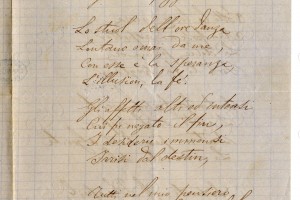 Lo stuol dell'ore
Lontano omai da me,
Con esse è la speranza
L'illusion, la fé!
Gli affetti alti ed intensi
Cui fu negato il
I desideri immensi
Irrisi dal destin,
Tutti nel mio pensiero